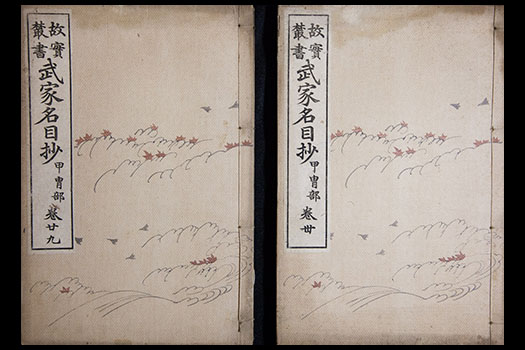 故實叢書
武家名目抄
甲冑部
卷廿九
故實叢書
武家名目抄
甲冑部
卷卅